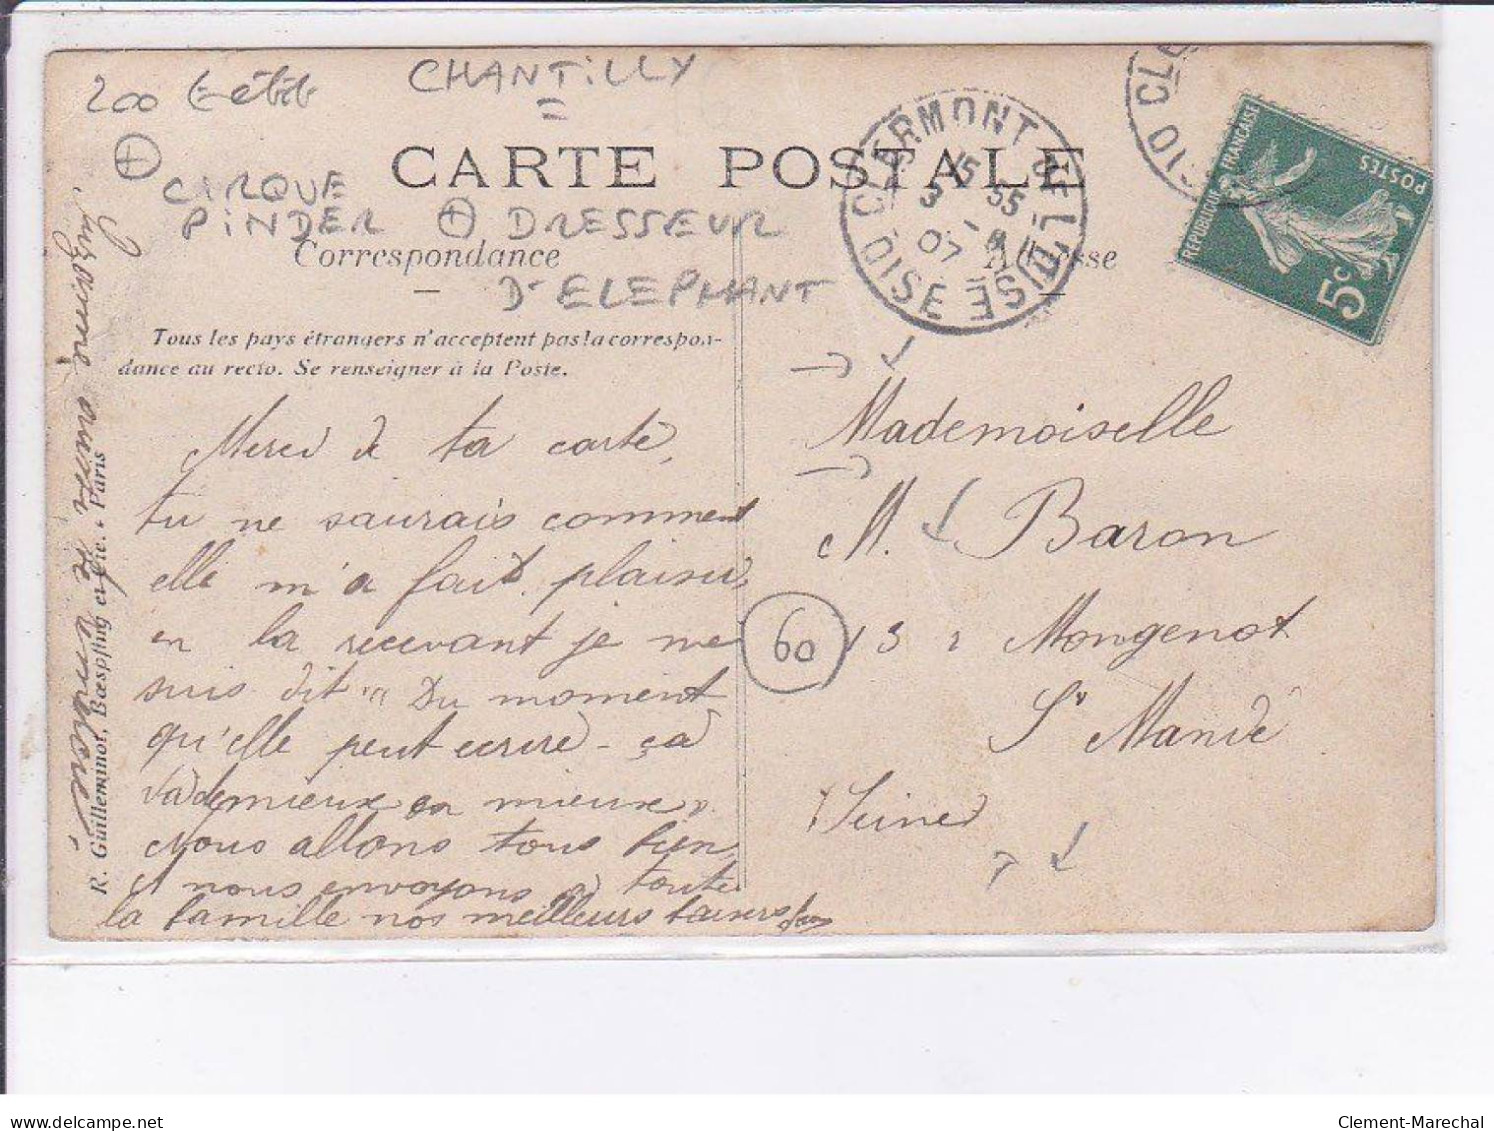 200 b-état
CHANTILLY
=
CARTE POSTALE
CIRQUE
PINDER + DRESSEUR
D' ELEPHANT
Correspondance
Adresse
CLERMONT DE L'OISE OISE
15 55
3 -
07
RÉPUBLIQUE FRANÇAISE
POSTES
5c
Tous les pays étrangers n'acceptent pas la correspon-
dance au recto. Se renseigner à la Poste.
Merci de ta carte,
tu ne saurais comment
elle m'a fait plaisir,
en la recevant je me
suis dit " Du moment
qu'elle peut ecrire - ça
va de mieux en mieux "
Nous allons tous bien,
et nous envoyons à toute
la famille nos meilleurs baisers
Suzanne
R. Guilleminot, Bœspflug et Cie. - Paris
Mademoiselle
M. Baron
13 r Mongenot
St Mandé
Seine
60
Clement-Marechal
delcampe.net